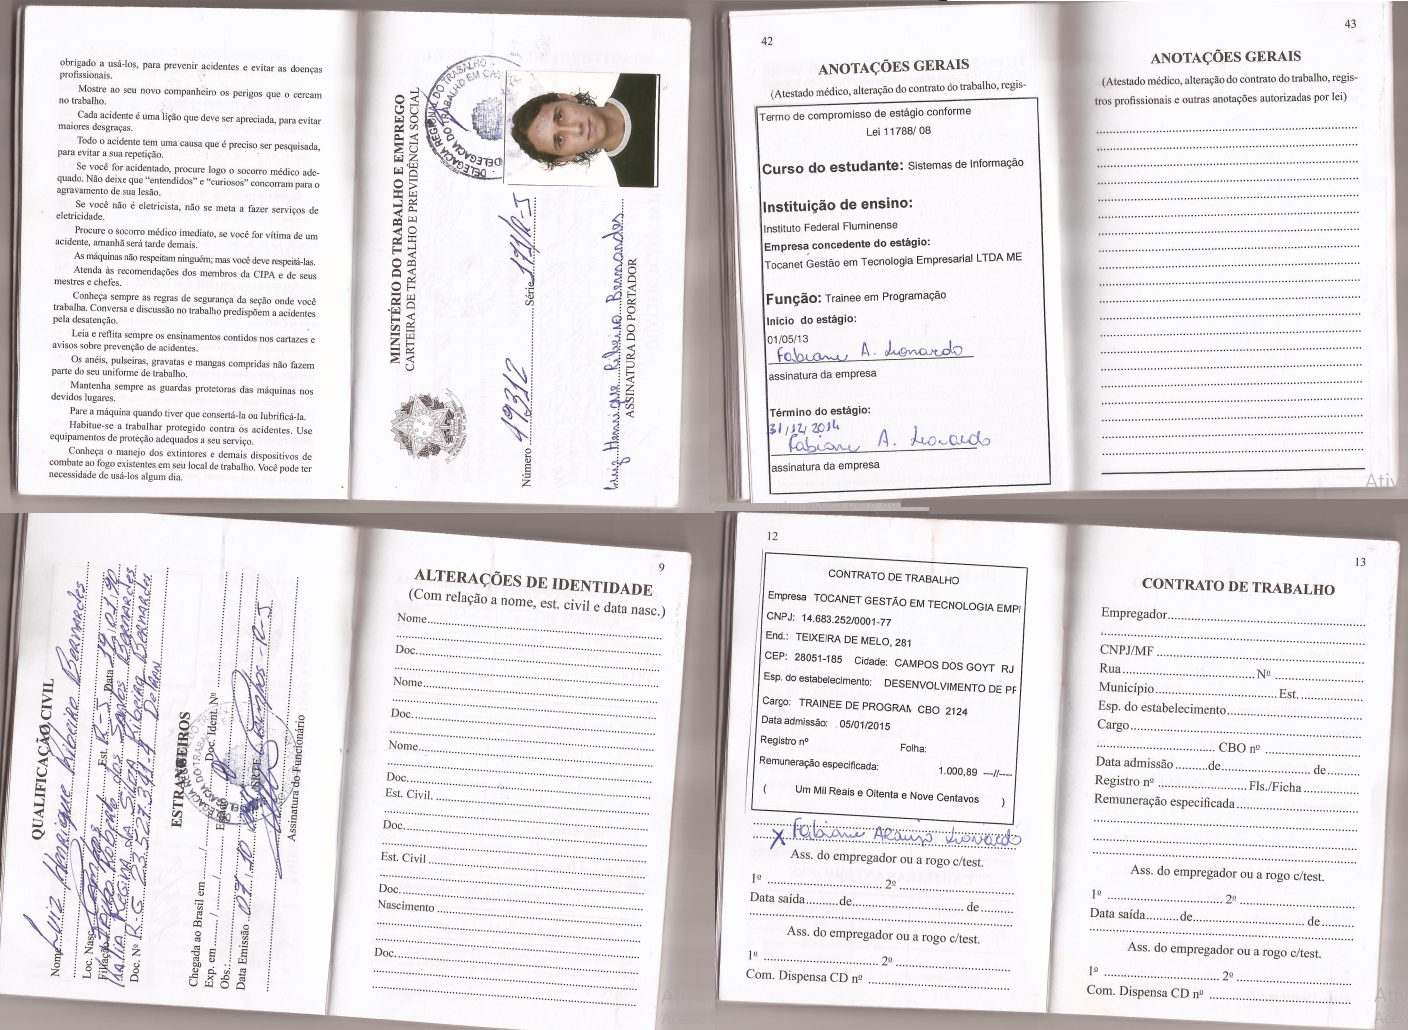 obrigado a usá-los, para prevenir acidentes e evitar as doenças
profissionais.
Mostre ao seu novo companheiro os perigos que o cercam
no trabalho.
Cada acidente é uma lição que deve ser apreciada, para evitar
maiores desgraças.
Todo o acidente tem uma causa que é preciso ser pesquisada,
para evitar a sua repetição.
Se você for acidentado, procure logo o socorro médico ade-
quado. Não deixe que “entendidos” e “curiosos” concorram para o
agravamento de sua lesão.
Se você não é eletricista, não se meta a fazer serviços de
eletricidade.
Procure o socorro médico imediato, se você for vítima de um
acidente, amanhã será tarde demais.
As máquinas não respeitam ninguém; mas você deve respeitá-las.
Atenda às recomendações dos membros da CIPA e de seus
mestres e chefes.
Conheça sempre as regras de segurança da seção onde você
trabalha. Conversa e discussão no trabalho predispõem a acidentes
pela desatenção.
Leia e reflita sempre os ensinamentos contidos nos cartazes e
avisos sobre prevenção de acidentes.
Os anéis, pulseiras, gravatas e mangas compridas não fazem
parte do seu uniforme de trabalho.
Mantenha sempre as guardas protetoras das máquinas nos
devidos lugares.
Pare a máquina quando tiver que consertá-la ou lubrificá-la.
Habitue-se a trabalhar protegido contra os acidentes. Use
equipamentos de proteção adequados a seu serviço.
Conheça o manejo dos extintores e demais dispositivos de
combate ao fogo existentes em seu local de trabalho. Você pode ter
necessidade de usá-los algum dia.
MINISTÉRIO DO TRABALHO E EMPREGO
CARTEIRA DE TRABALHO E PREVIDÊNCIA SOCIAL
DELEGACIA REGIONAL DO TRABALHO
DELEGACIA DO TRABALHO EM
Número 49312 Série 171/R-J
Luiz Henrique Ribeiro Bernardes
ASSINATURA DO PORTADOR
42
ANOTAÇÕES GERAIS
(Atestado médico, alteração do contrato do trabalho, regis-
Termo de compromisso de estágio conforme
Lei 11788/ 08
Curso do estudante: Sistemas de Informação
Instituição de ensino:
Instituto Federal Fluminense
Empresa concedente do estágio:
Tocanet Gestão em Tecnologia Empresarial LTDA ME
Função: Trainee em Programação
Início do estágio:
01/05/13
Fabiane A. Leonardo
assinatura da empresa
Término do estágio:
31/12/2014
Fabiane A. Leonardo
assinatura da empresa
43
ANOTAÇÕES GERAIS
(Atestado médico, alteração do contrato do trabalho, regis-
tros profissionais e outras anotações autorizadas por lei)
Ativ
QUALIFICAÇÃO CIVIL
Nome Luiz Henrique Ribeiro Bernardes
Loc. Nasc. Campos Est. R-J Data 19.01.90
Filiação João Roberto dos Santos Bernardes
Regina da Silva Ribeiro Bernardes
Doc. Nº R.G 23.527.311-4 Detran
ESTRANGEIROS
Chegada ao Brasil em / / Doc. Ident. Nº
Exp. em / / Estado
Obs.:
Data Emissão 07.10 Campos - R-J
Assinatura do Funcionário
9
ALTERAÇÕES DE IDENTIDADE
(Com relação a nome, est. civil e data nasc.)
Nome
Doc.
Nome
Doc.
Nome
Doc.
Est. Civil.
Doc.
Est. Civil
Doc.
Nascimento
Doc.
12
CONTRATO DE TRABALHO
Empresa TOCANET GESTÃO EM TECNOLOGIA EMPI
CNPJ: 14.683.252/0001-77
End.: TEIXEIRA DE MELO, 281
CEP: 28051-185 Cidade: CAMPOS DOS GOYT RJ
Esp. do estabelecimento: DESENVOLVIMENTO DE PF
Cargo: TRAINEE DE PROGRAM CBO 2124
Data admissão: 05/01/2015
Registro nº Folha:
Remuneração especificada: 1.000,89 ---//----
( Um Mil Reais e Oitenta e Nove Centavos )
X Fabiane Araujo Leonardo
Ass. do empregador ou a rogo c/test.
1º 2º
Data saída de de
Ass. do empregador ou a rogo c/test.
1º 2º
Com. Dispensa CD nº
13
CONTRATO DE TRABALHO
Empregador
CNPJ/MF
Rua Nº
Município Est.
Esp. do estabelecimento
Cargo
CBO nº
Data admissão de de
Registro nº Fls./Ficha
Remuneração especificada
Ass. do empregador ou a rogo c/test.
1º 2º
Data saída de de
Ass. do empregador ou a rogo c/test.
1º 2º
Com. Dispensa CD nº